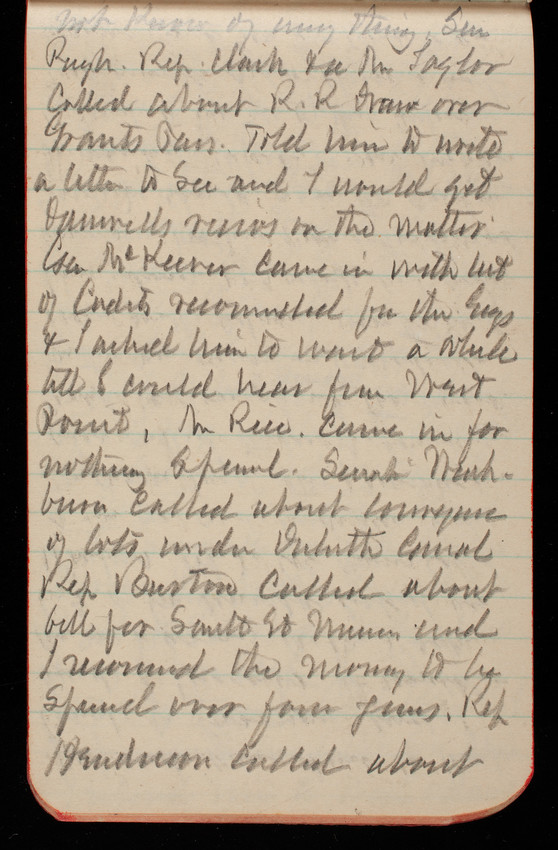 not know of any thing, Sen
Pugh. Rep. Clark & a Mr Taylor
Called about R. R. over
Grants Pass. Told him to write
a letter to Sec and I would get
views on the matter
Gen McKeever came in with list
of Cadets recommended for the Engs
& I asked him to wait a while
till I could hear from West
Point, Mr Rice. came in for
nothing special. Senator Wash-
burn called about
of lots under Duluth Canal
Rep Burton called about
bill for Sault St Maries and
I recommend the money to be
spend over four years. Rep
Henderson called about